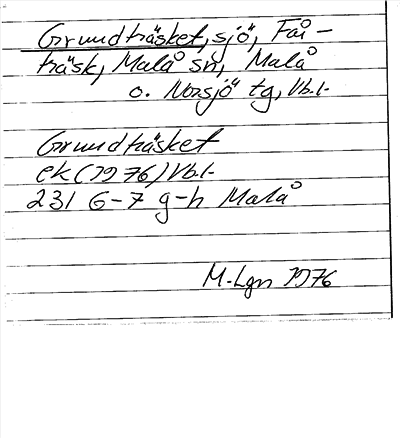 Grundträsket, sjö, Få-
träsk, Malå sn, Malå
o. Norsjö tg, Vb.l.
Grundträsket
ek (1976) Vb.l.
231 G-7 g-h Malå
M. Lgn 1976